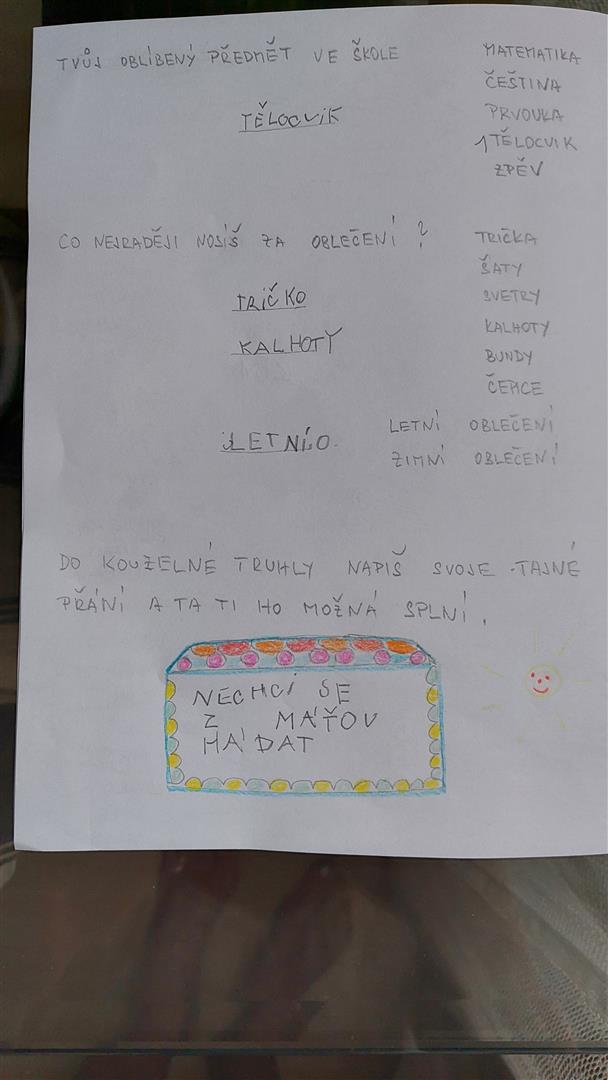 TVŮJ OBLÍBENÝ PŘEDMĚT VE ŠKOLE
MATEMATIKA
ČEŠTINA
PRVOUKA
1 TĚLOCVIK
ZPĚV
TĚLOCVIK
CO NEJRADĚJI NOSÍŠ ZA OBLEČENÍ ?
TRIČKA
ŠATY
SVETRY
KALHOTY
BUNDY
ČEPICE
TRIČKO
KALHOTY
LETNÍ OBLEČENÍ
ZIMNÍ OBLEČENÍ
LETNÍO
DO KOUZELNÉ TRUHLY NAPIŠ SVOJE TAJNÉ
PŘÁNÍ A TA TI HO MOŽNÁ SPLNÍ.
NECHCI SE
Z MÁŤOU
HÁDAT